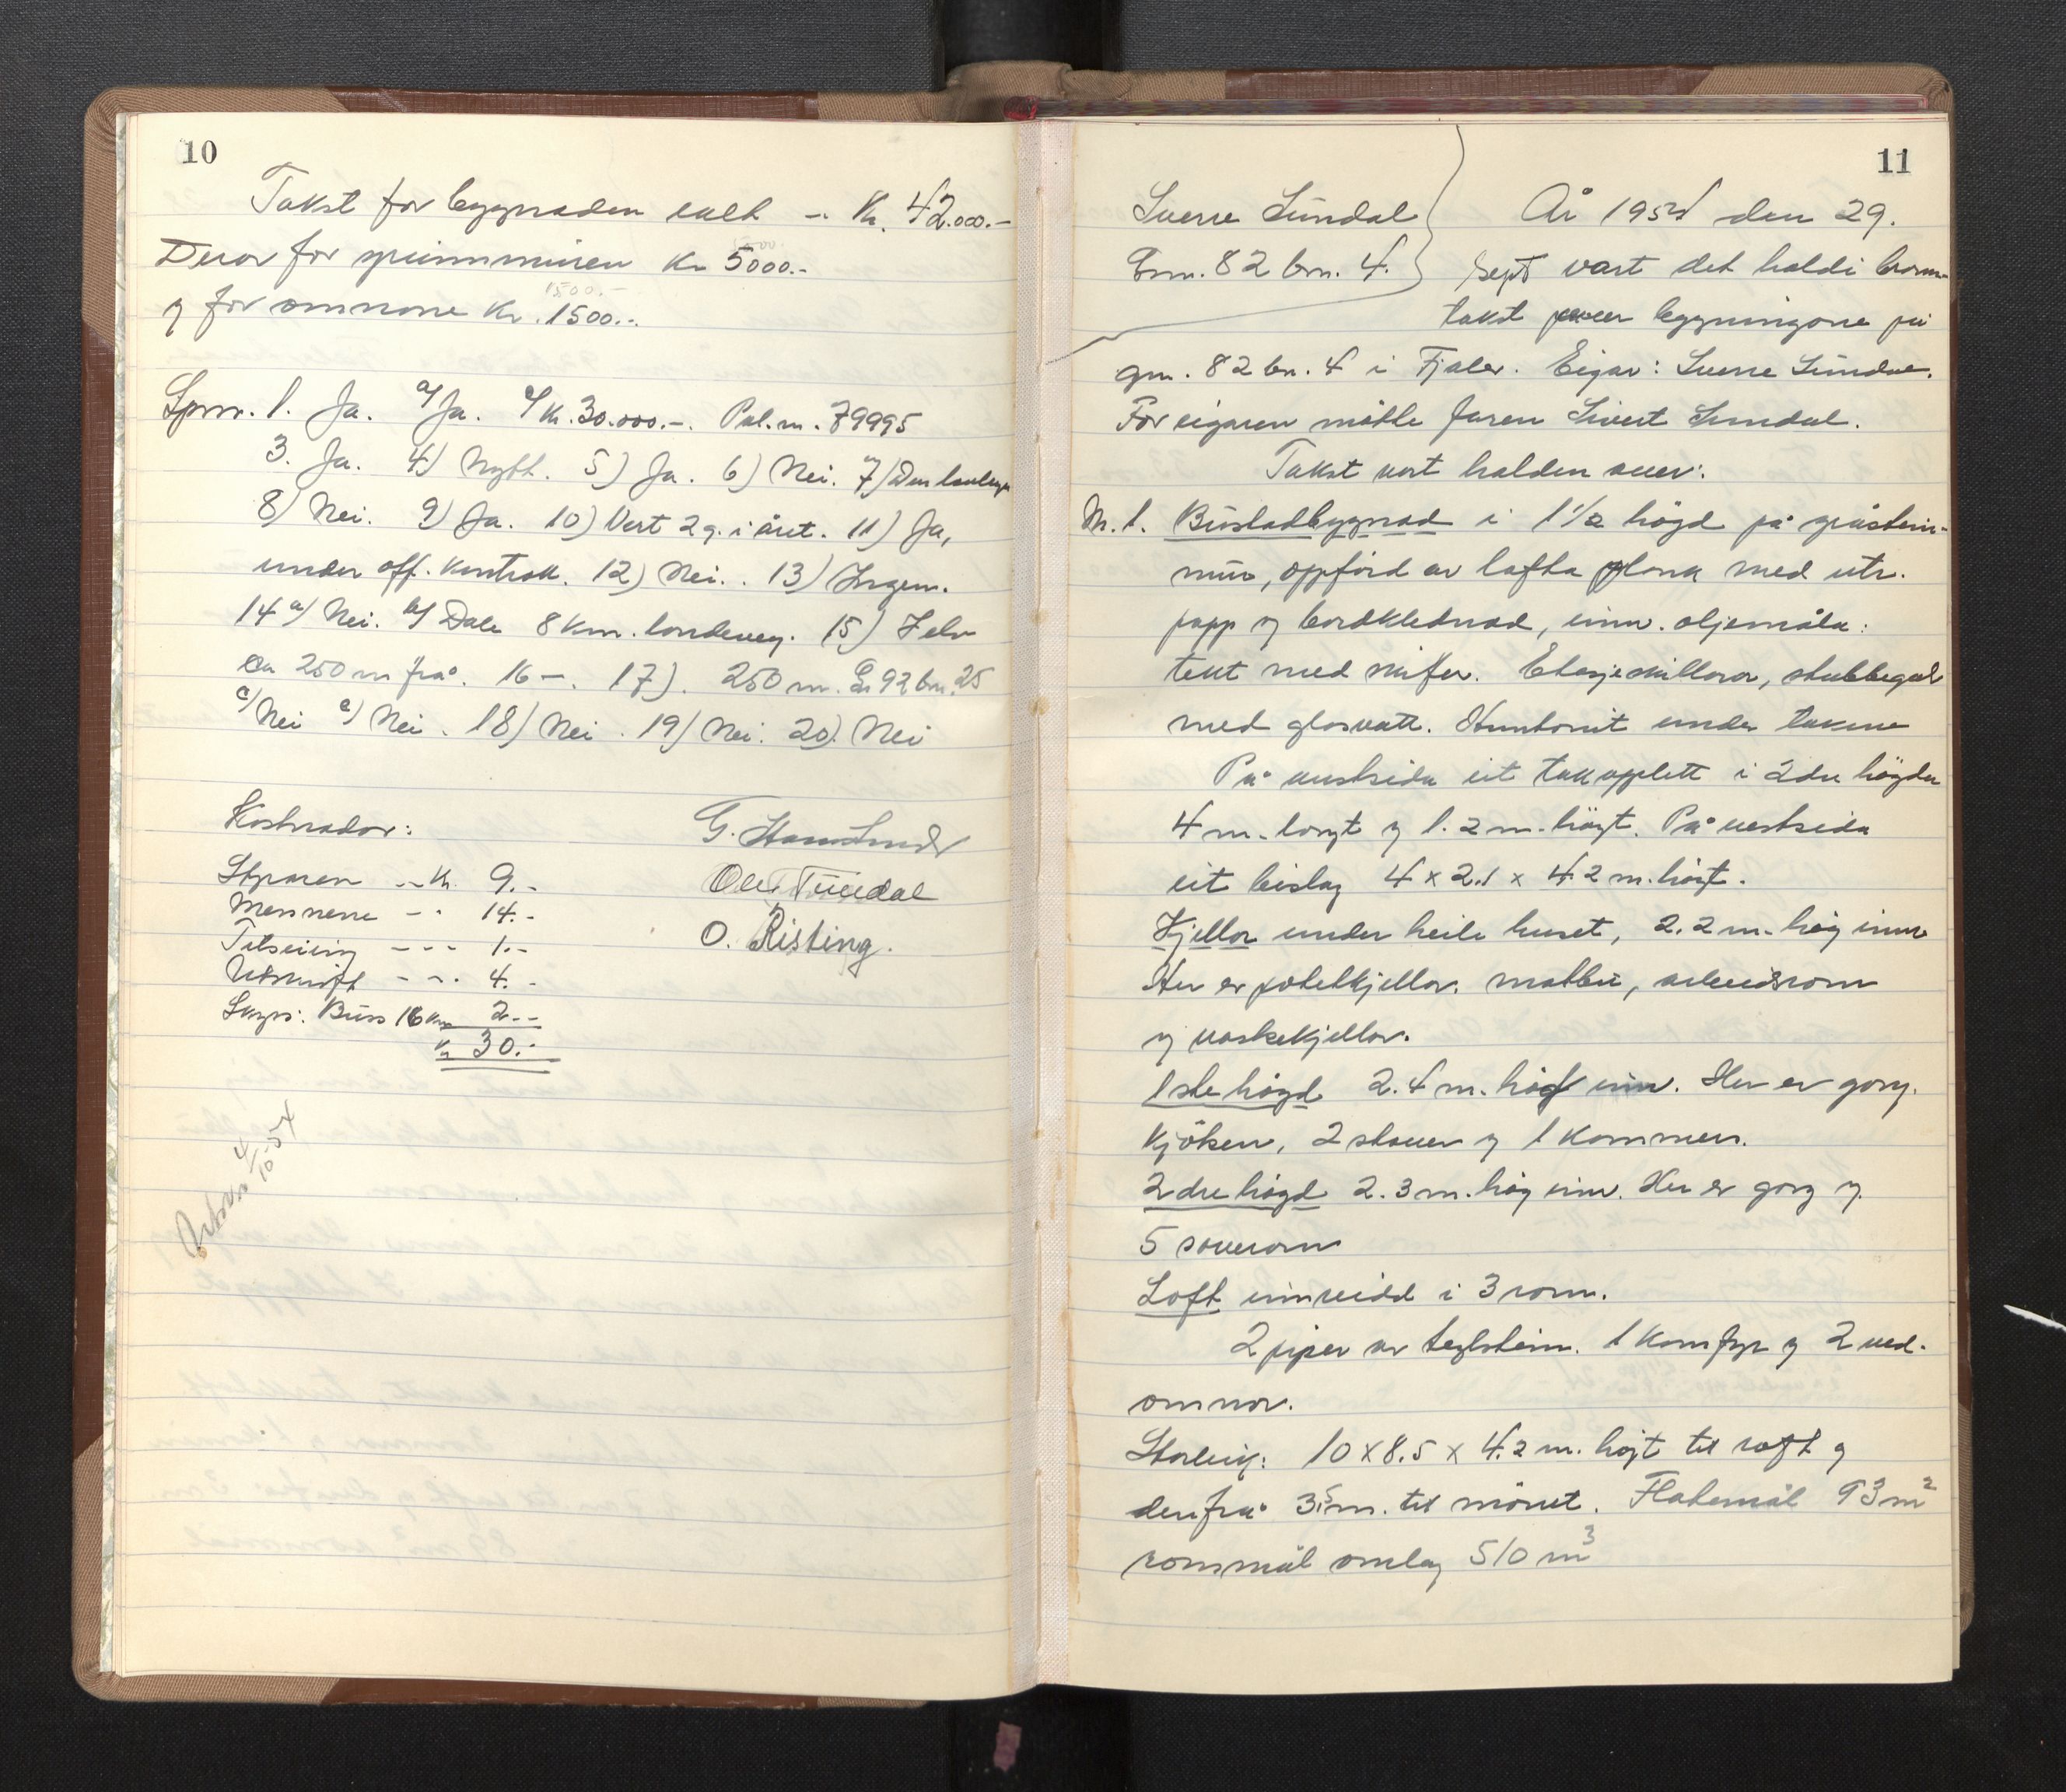 10
Takst for bygnaden ialt - Kr. 42.000.-
5000.
Derav for grunnmuren Kr 5000.-
1500.-
og for omnane Kr. 1500.-
Spm. 1. Ja. a/ Ja. c/ Kr. 30.000.-. Pol. nr. 79995
3. Ja. 4) Nytt. 5) Ja. 6) Nei. 7)
8) Nei. 9) Ja. 10) Vert 2 g. i året. 11) Ja,
under off. kontroll. 12) Nei. 13) Ingen.
14 a/ Nei. b/ Dale 8 km. landeveg. 15) I elv
ca 250 m frå. 16 -. 17). 250 m. G 92 bn. 25
c/ Nei e/ Nei. 18) Nei. 19) Nei. 20). Nei
Kostnader:
Styraren - Kr. 9.-
Mennene - 14.-
Tilseiing - - - 1.-
Utskrift - - 4.-
Skyss: Buss 16 km 2.-
Kr 30.-
O. Risting.
Utskr. 4/10-54
11
Sverre Sundal
Gnr. 82 bn. 4.
År 1954 den 29.
sept vart det haldi brann-
takst over bygningane på
gnr. 82 bn. 4 i Fjaler. Eigar: Sverre Sundal.
For eigaren møtte faren Sivert Sundal.
Takst vart halden over:
Nr. 1. Bustadbygnad i 1 1/2 högd på gråstein-
mur, oppförd av lafta plank med utv.
papp og bordklednad, innv. oljemåla:
tekt med skifer. Etasjeskillnar, stubbegolv
med glasvatt. Huntonit under takene
På austsida eit takopplett i 2dre högda
4 m. langt og 1.2 m. högt. På vestsida
eit bislag 4 x 2.1 x 4.2 m. högt.
Kjellar under heile huset, 2.2 m. hög innv
Her er potetkjellar, matbu, arbeidsrom
og vaskekjellar.
1ste högd 2.4 m. høg innv. Her er gang.
kjöken, 2 stover og 1 kammers.
2dre högd 2.3 m. hög innv. Her er gang og
5 soverom
Loft innreidd i 3 rom.
2 piper av teglstein. 1 komfyr og 2 ved-
omnar.
Storleik: 10 x 8.5 x 4.2 m. högt til raft og
derifrå 3.5 m. til mönet. Flatemål 93 m2
rommål omlag 510 m3